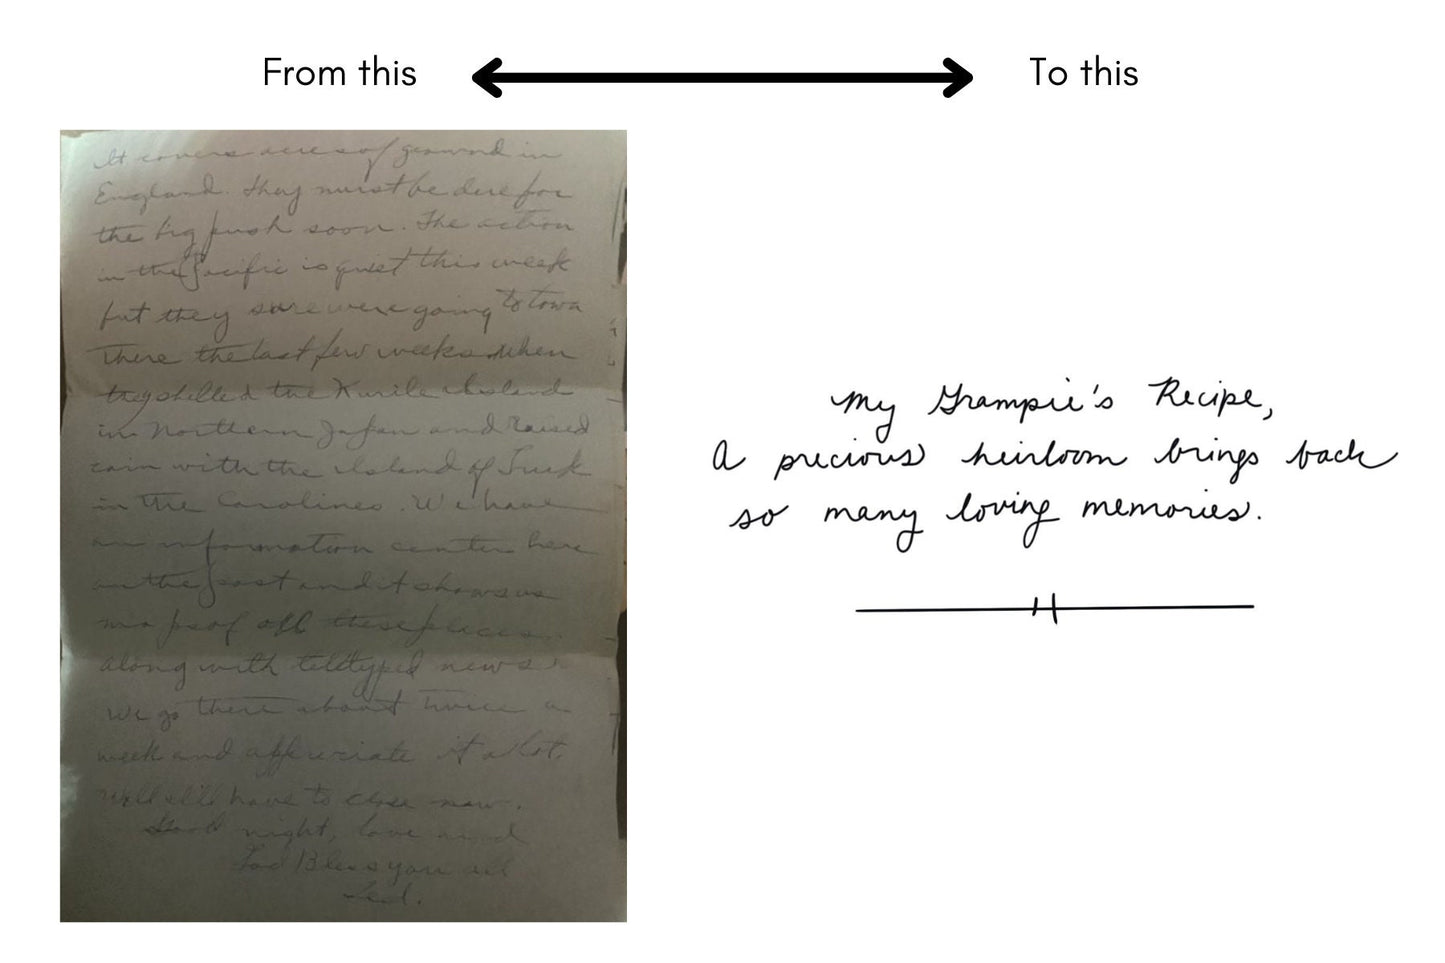 From this
To this
It covers acres of ground in
England. They must be due for
the big push soon. The action
in the Pacific is quiet this week
but they sure were going to town
there the last few weeks when
they shelled the Kurile Island
in Northern Japan and raised
cain with the Island of Truk
in the Carolines. We have
an information center here
on the post and it shows us
maps of all these places
along with teletyped news.
We go there about twice a
week and appreciate it a lot.
Well I'll have to close now.
Good night, love and
God Bless you all
My Grampie's Recipe,
A precious heirloom brings back
so many loving memories.